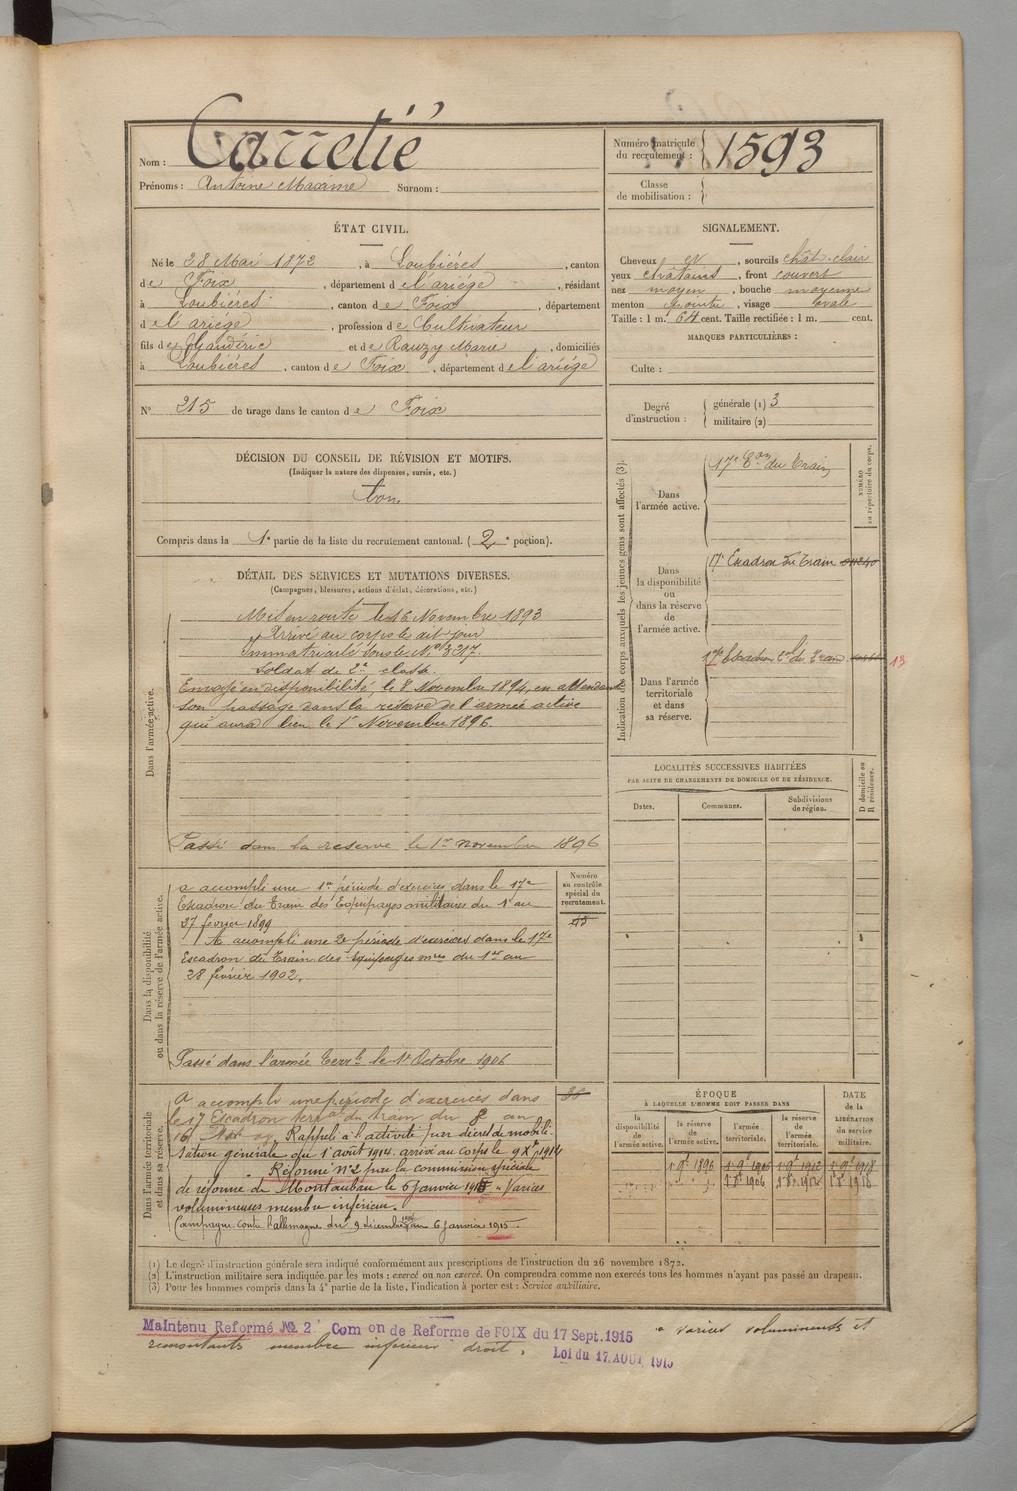 Nom : Carretié
Prénoms : Antoine Maxime Surnom :
Numéro matricule du recrutement : 1593
Classe de mobilisation :
ÉTAT CIVIL.
Né le 28 Mai 1872, à Loubières, canton
de Foix, département de l'ariège, résidant
à Loubières, canton de Foix, département
d e l'ariège, profession de Cultivateur
fils de et de Rauzy Marie, domiciliés
à Loubières, canton de Foix, département de l'ariège
N° 215 de tirage dans le canton de Foix
SIGNALEMENT.
Cheveux , sourcils chât-clair
yeux chatains, front couvert
nez moyen, bouche moyenne
menton pointu, visage ovale
Taille : 1 m. 64 cent. Taille rectifiée : 1 m. cent.
MARQUES PARTICULIÈRES :
Culte :
Degré d'instruction : générale (1) 3
militaire (2)
DÉCISION DU CONSEIL DE RÉVISION ET MOTIFS.
(Indiquer la nature des dispenses, sursis, etc.)
bon
Compris dans la 1e partie de la liste du recrutement cantonal. (2e portion).
DÉTAIL DES SERVICES ET MUTATIONS DIVERSES.
(Campagnes, blessures, actions d'éclat, décorations, etc.)
Dans l'armée active.
Mis en route le 16 Novembre 1893
Arrivé au corps le dit jour
Immatriculé sous le No 3217.
Soldat de 2e classe
Envoyé en disponibilité, le 8 Novembre 1894, en attendant
son passage dans la réserve de l'armée active
qui aura lieu le 1er Novembre 1896.
Passé dans la reserve le 1er novembre 1896
Dans la disponibilité ou dans la réserve de l'armée active.
a accompli une 1re période d'exercices dans le 17e
Escadron du Train des Equipages militaires du 1er au
27 fevrier 1899
A accompli une 2e période d'exercices dans le 17e
Escadron du Train des équipages mres du 1er au
28 février 1902.
Passé dans l'armée Terrle le 1er Octobre 1906
Numéro au contrôle spécial du recrutement.
45
Dans l'armée territoriale et dans sa réserve.
A accompli une période d'exercices dans
le 17 Escadron terral du train du 8 au
16 Rappelé à l'activité par décret de mobili-
sation générale du 1er août 1914. arrivé au Corps le 9 Xbre 1914
Réformé n°2 par la commission spéciale
de réforme de Montauban le 6 Janvier 1915 "Varices
volumineuses membre inférieur.
Campagne contre l'allemagne du 9 décembre 1914 au 6 janvier 1915.
Indication des corps auxquels les jeunes gens sont affectés (3).
NUMÉRO au répertoire du corps.
Dans l'armée active.
17e Eon du Train
Dans la disponibilité ou dans la réserve de l'armée active.
17e Escadron du Train
Dans l'armée territoriale et dans sa réserve.
17e Escadron Tal du Train
13
LOCALITÉS SUCCESSIVES HABITÉES
PAR SUITE DE CHANGEMENTS DE DOMICILE OU DE RÉSIDENCE.
D domicile ou R résidence.
Dates. Communes. Subdivisions de région.
ÉPOQUE
À LAQUELLE L'HOMME DOIT PASSER DANS
DATE de la LIBÉRATION du service militaire.
la disponibilité de l'armée active. la réserve de l'armée active. l'armée territoriale. la réserve de l'armée territoriale.
(1) Le degré d'instruction générale sera indiqué conformément aux prescriptions de l'instruction du 26 novembre 1872.
(2) L'instruction militaire sera indiquée par les mots : exercé ou non exercé. On comprendra comme non exercés tous les hommes n'ayant pas passé au drapeau.
(3) Pour les hommes compris dans la 4e partie de la liste, l'indication à porter est : Service auxiliaire.
Maintenu Reformé No 2 Comon de Reforme de FOIX du 17 Sept. 1915
varices volumineuses et
remontants membre inférieur droit.
Loi du 17 AOUT 1915